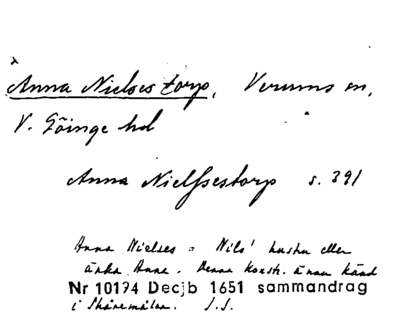 Anna Nielses torp, Verums sn,
V. Göinge hd
Anna Nielssestorp s. 391
Anna Nielses = Nils' hustru eller
änka Anna. Denna konstr. ännu känd
Nr 10174 Decjb 1651 sammandrag
i Skånemålen. I.I.